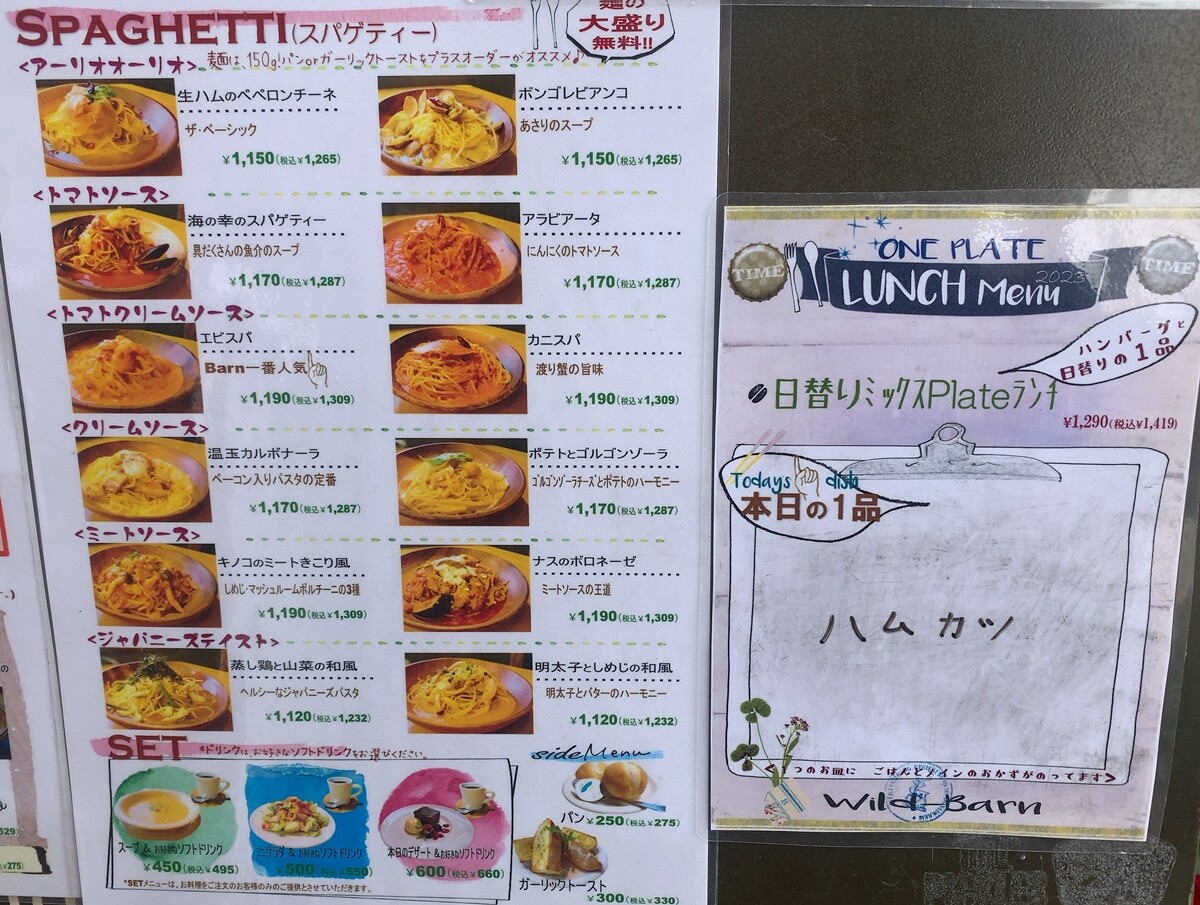 SPAGHETTI(スパゲティー)
麺の
大盛り
無料!!
<アーリオオーリオ>
麦麺は、150g!パンorガーリックトーストをプラスオーダーがオススメ♪
生ハムのペペロンチーネ
ザ・ベーシック
¥1,150(税込¥1,265)
ボンゴレビアンコ
あさりのスープ
¥1,150(税込¥1,265)
<トマトソース>
海の幸のスパゲティー
具だくさんの魚介のスープ
¥1,170(税込¥1,287)
アラビアータ
にんにくのトマトソース
¥1,170(税込¥1,287)
<トマトクリームソース>
エビスパ
Barn一番人気
¥1,190(税込¥1,309)
カニスパ
渡り蟹の旨味
¥1,190(税込¥1,309)
<クリームソース>
温玉カルボナーラ
ベーコン入りパスタの定番
¥1,170(税込¥1,287)
ポテトとゴルゴンゾーラ
ゴルゴンゾーラチーズとポテトのハーモニー
¥1,170(税込¥1,287)
<ミートソース>
キノコのミートきこり風
しめじ・マッシュルームポルチーニの3種
¥1,190(税込¥1,309)
ナスのボロネーゼ
ミートソースの王道
¥1,190(税込¥1,309)
<ジャパニーズテイスト>
蒸し鶏と山菜の和風
ヘルシーなジャパニーズパスタ
¥1,120(税込¥1,232)
明太子としめじの和風
明太子とバターのハーモニー
¥1,120(税込¥1,232)
SET
*ドリンクは、お好きなソフトドリンクをお選びください。
スープ & お好きなソフトドリンク
¥450(税込¥495)
ミニサラダ & お好きなソフトドリンク
¥500(税込¥550)
本日のデザート & お好きなソフトドリンク
¥600(税込¥660)
*SETメニューは、お料理をご注文のお客様のみのご提供とさせていただきます。
sideMenu
パン ¥250(税込¥275)
ガーリックトースト
¥300(税込¥330)
TIME
ONE PLATE
LUNCH Menu
2023
TIME
ハンバーグと
日替りの1品
日替りミックスPlateランチ
¥1,290(税込¥1,419)
Todays dish
本日の1品
ハムカツ
<1つのお皿に ごはんとメインのおかずがのってます>
Wild-Barn